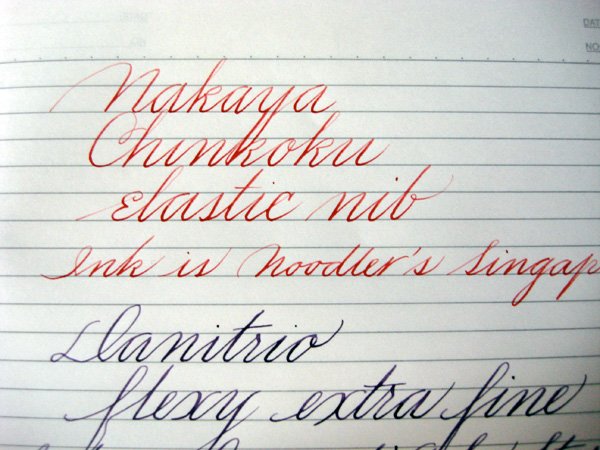 DAT
NO.
Nakaya
Chinkoku
elastic nib
Ink is Noodler's Singap
Danitrio
flexy extra fine